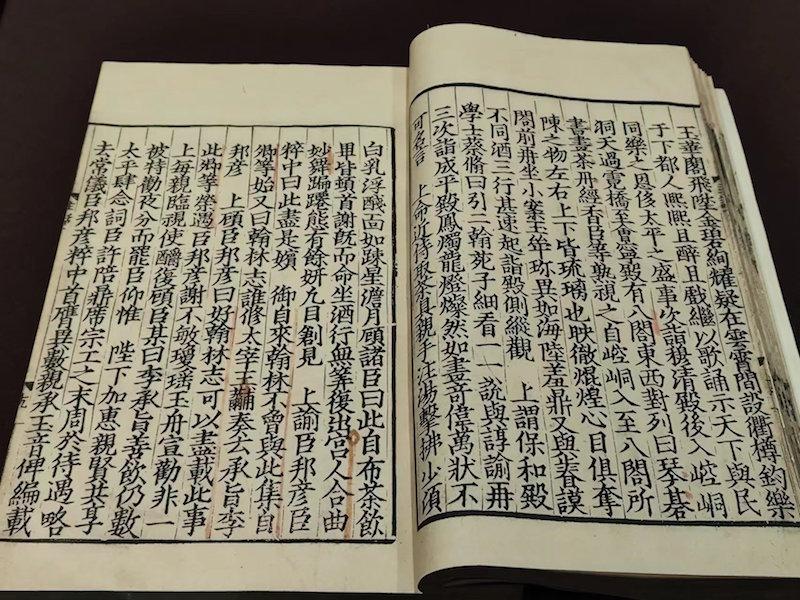 玉華閣飛陞金碧絢耀疑在雲霄間設衢樽鈞樂
于下都人熙熙且醉且戲繼以歌誦示天下與民
同樂之恩侈太平之盛事次詣穆清殿後入崆峒
洞天過霓橋至會寧殿有八閣東西對列曰琴棊
書畫茶丹經香臣等熟視之自崆峒入至八閣所
陳之物左右上下皆琉璃也映徹焜煌心目俱奪
閣前再坐小案玉斝珍異如海陸羞鼎又與睿謨
不同酒三行甚速起詣殿側縱觀　上謂保和殿
學士蔡翛曰引二翰苑子細看一一說與諄諭再
三次詣成平殿鳳燭龍燈燦然如晝奇偉萬狀不
可名言　上命近侍取茶具親手注湯擊拂少頃
白乳浮醆面如疎星澹月顧諸臣曰此自布茶飲
畢皆頓首謝既而命坐酒行無筭復出宮人合曲
妙舞蹁躚態有餘妍凡目創見　上諭臣邦彦臣
粹中曰此盡是嬪　御自來翰林不曾與此集自
卿等始又曰翰林志誰修太宰王黼奏云承旨李
邦彦　上顧臣邦彦曰好翰林志可以盡載此事
此卿等榮遇臣邦彦謝不敏瓊瑤玉舟宣勸非一
上每親臨視使釂復顧臣某曰李承旨善飲仍數
被特勸夜分而罷臣仰惟　陛下加惠親賢共享
太平肆念詞臣許陪鼎席宗工之末周於待遇略
去常儀臣邦彦粹中首膺異數親承玉音俾編載